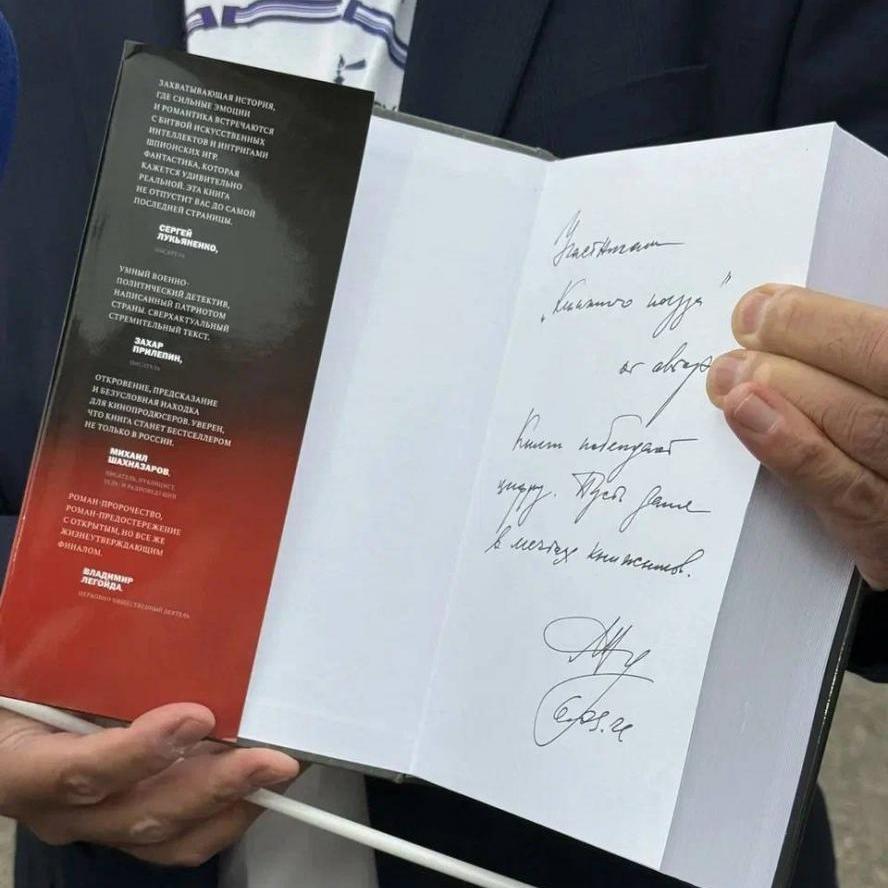 ЗАХВАТЫВАЮЩАЯ ИСТОРИЯ,
ГДЕ СИЛЬНЫЕ ЭМОЦИИ
И РОМАНТИКА ВСТРЕЧАЮТСЯ
С БИТВОЙ ИСКУССТВЕННЫХ
ИНТЕЛЛЕКТОВ И ИНТРИГАМИ
ШПИОНСКИХ ИГР.
ФАНТАСТИКА, КОТОРАЯ
КАЖЕТСЯ УДИВИТЕЛЬНО
РЕАЛЬНОЙ. ЭТА КНИГА
НЕ ОТПУСТИТ ВАС ДО САМОЙ
ПОСЛЕДНЕЙ СТРАНИЦЫ.
СЕРГЕЙ
ЛУКЬЯНЕНКО,
ПИСАТЕЛЬ
УМНЫЙ ВОЕННО-
ПОЛИТИЧЕСКИЙ ДЕТЕКТИВ,
НАПИСАННЫЙ ПАТРИОТОМ
СТРАНЫ. СВЕРХАКТУАЛЬНЫЙ
СТРЕМИТЕЛЬНЫЙ ТЕКСТ.
ЗАХАР
ПРИЛЕПИН,
ПИСАТЕЛЬ
ОТКРОВЕНИЕ, ПРЕДСКАЗАНИЕ
И БЕЗУСЛОВНАЯ НАХОДКА
ДЛЯ КИНОПРОДЮСЕРОВ. УВЕРЕН,
ЧТО КНИГА СТАНЕТ БЕСТСЕЛЛЕРОМ
НЕ ТОЛЬКО В РОССИИ.
МИХАИЛ
ШАХНАЗАРОВ,
ПИСАТЕЛЬ, ПУБЛИЦИСТ,
ТЕЛЕ- И РАДИОВЕДУЩИЙ
РОМАН-ПРОРОЧЕСТВО,
РОМАН-ПРЕДОСТЕРЕЖЕНИЕ
С ОТКРЫТЫМ, НО ВСЕ ЖЕ
ЖИЗНЕУТВЕРЖДАЮЩИМ
ФИНАЛОМ.
ВЛАДИМИР
ЛЕГОЙДА,
ЦЕРКОВНО-ОБЩЕСТВЕННЫЙ ДЕЯТЕЛЬ
Участникам
„Книжного
от автора
Книги побеждают
цифру. Пусть даже
в мечтах книжников.